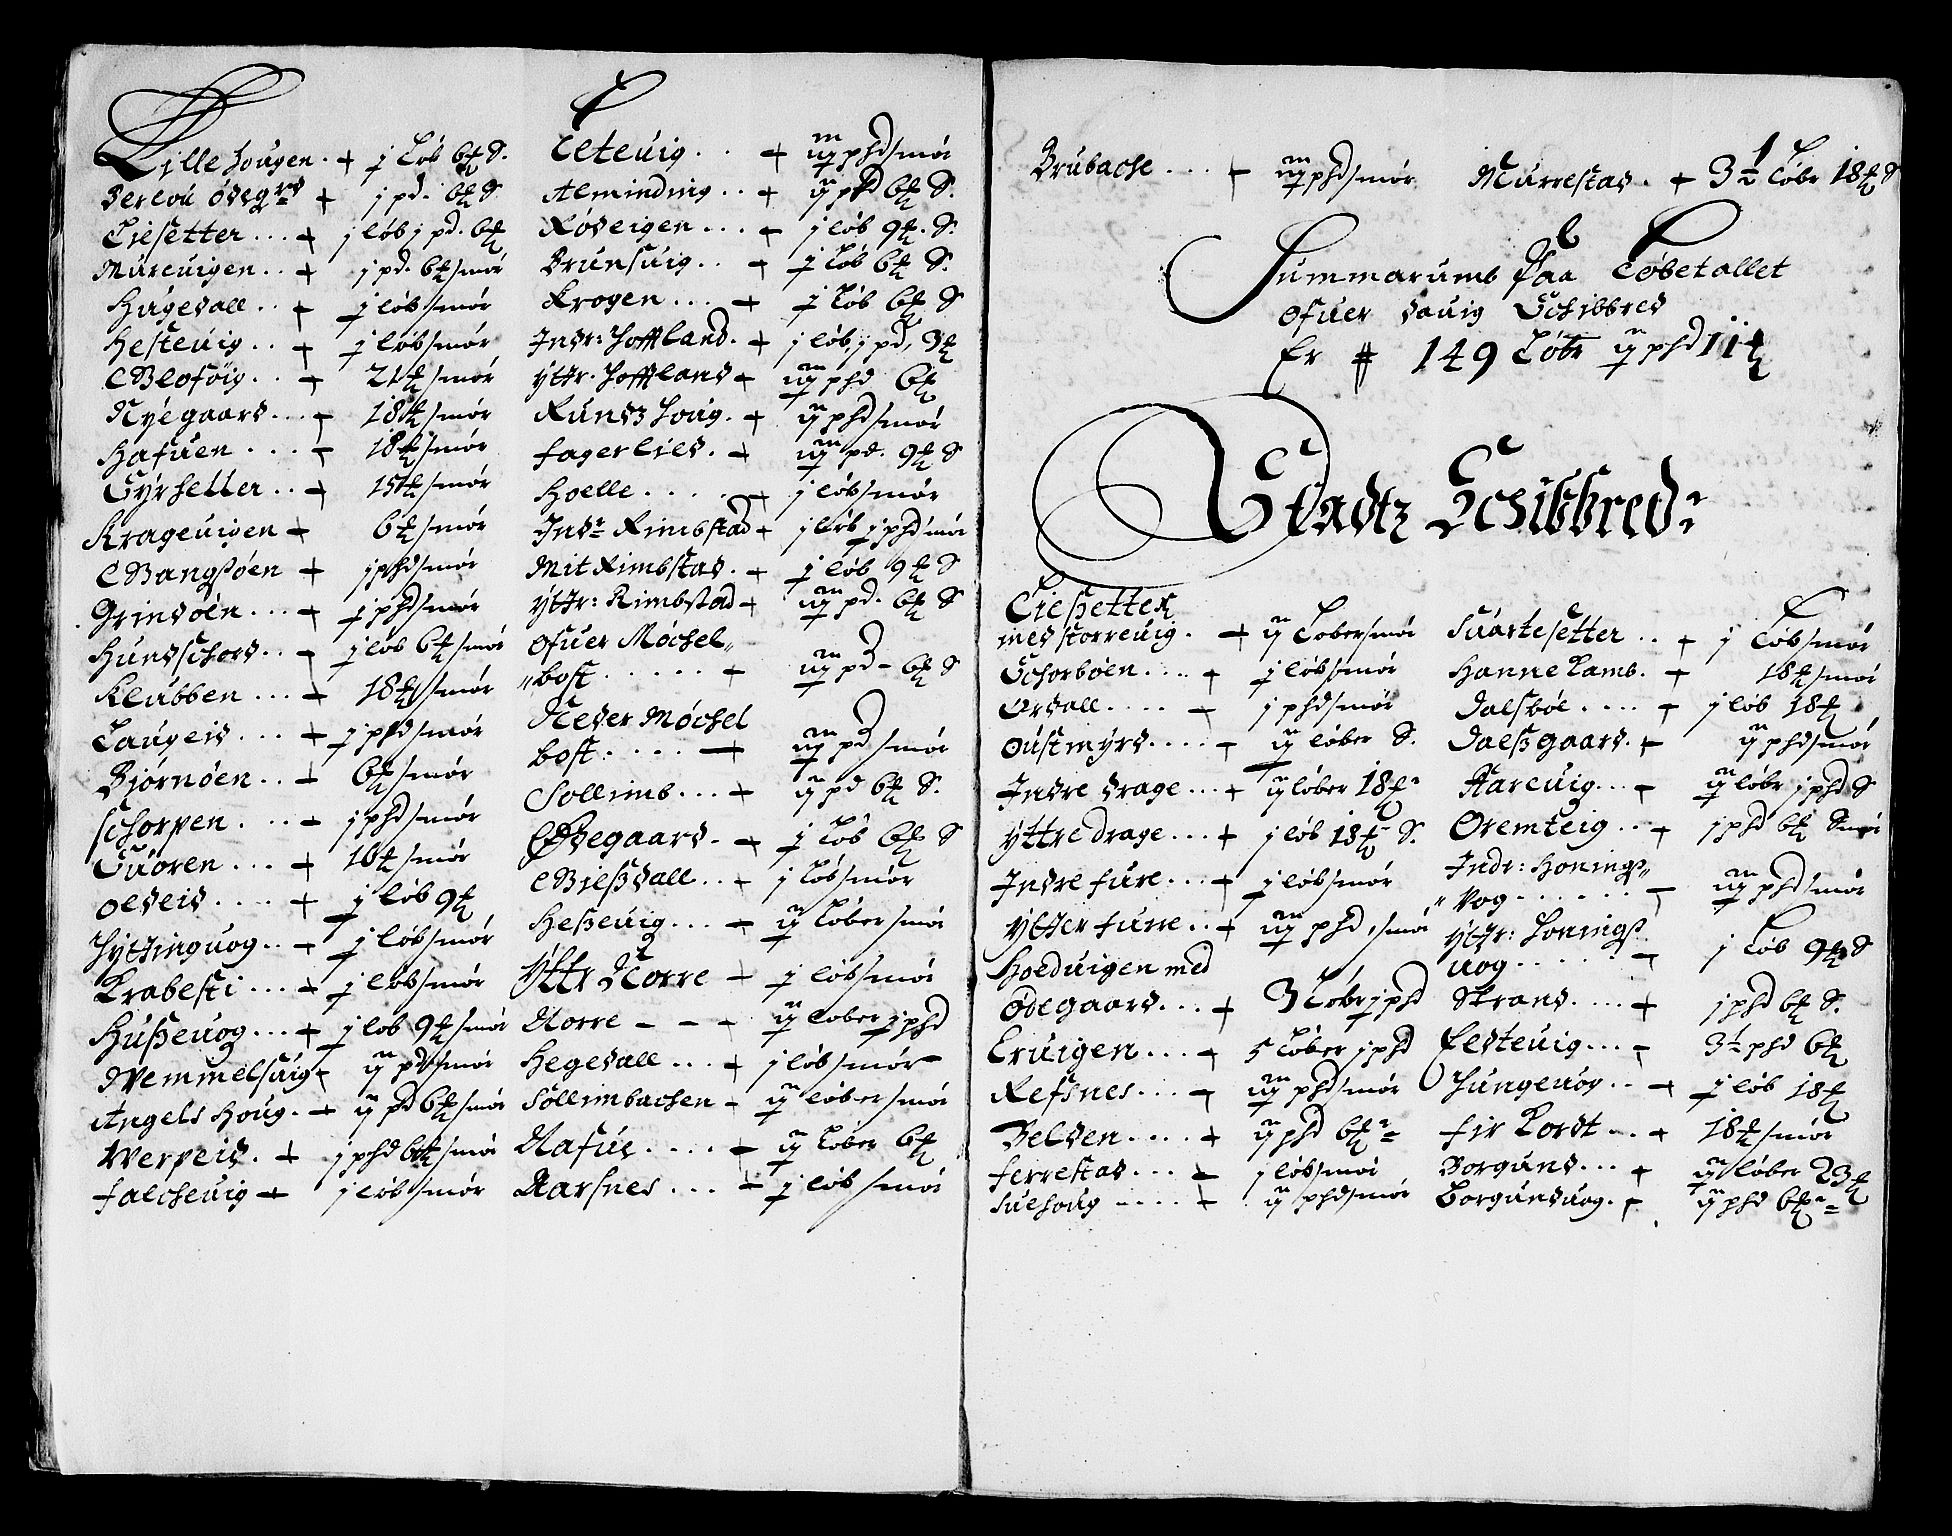 Lille hougen . + j Løb 6 ℔ S.
Berlou ødeg + j pd. 6 ℔ S
Liesetter ... + j løb j pd. 6 ℔
Mureuigen .. + j pd. 6 ℔ smör
Hagedall .. + j løb smör
Hesteuig .. + j løb smör
Bloföig .. + 21 ℔ smör
Nyegaard ... + 18 ℔ smör
Hafuen ... + 18 ℔ smör
Gyrsetter .. + 15 ℔ smör
Krageuigen + 6 ℔ smör
Vangsöen + j phd smör
Grindöen ... + j phd smör
Hundschord .. + j løb 6 ℔ smör
Klubben ... + 18 ℔ smör
Laugeid ... + j phd smör
Biørnöen .. + 6 ℔ smör
Schorpen . ... + j phd smör
Guoren ... + 16 ℔ smör
Oldeid .... + j løb 9 ℔
Hyttinguog .. + j løb smör
Krabesti ... + j løb smör
Husseuog ... + j løb 9 ℔ smör
Wemmelsuig + ij pd smör
Angels houg . + ij pd 6 ℔ smör
Werpeid . + j phd 6 ℔ smör
Falcheuig + j løb smör
Leteuig ... + iij phd smör
Alminding .. + ij phd 6 ℔ S.
Rödeigen ... + j løb 9 ℔ S.
Brunsuig .. + j Løb 6 ℔ S.
Krogen ... + j Løb 6 ℔ S
Indr: Hoffland . + j løb, j pd, 3 ℔
Yttr. Hoffland + iij phd 6 ℔
Rundz houg . + ij phd smör
Fagerlied . + iij pd. 9 ℔ S
Hoelle ..... + j løb smör
Indr Rimbstad + j løb j phd smör
Mit Rimbstad . + j løb 9 ℔ S
Yttr: Rimbstad + iij pd. 6 ℔ S
Ofuer Möchel„
„bost ..... + iij pd - 6 ℔ S
Neder Möchel
bost ..... + iij pd smör
Sollimb ... + ij pd 6 ℔ S.
Ødegaard . + j Løb 6 ℔ S
Biessdall .. + j Løb smör
Hesseuig ... + ij Løber smör
Yttr Norre + j løb smör
Norre - - - ij Løber j phd
Hegedall ... + j løb smör
Söllimbachen - ij løber smör
Nafue .... + ij Løber 6 ℔
Aarsnes ... + j løb smör
Brubache ... + iij phd smör
Murrestad . + 3½ Løbr 18 ℔ S
Summarumb Paa Løbetallet
Ofuer dauig Schibbred
Er # 149 Løbr ij phd 11 ℔
Stadtz Schibbred
Liessetter
med storreuig . + ij Løber smör
Schorböen .... + j løb smör
Ordall .... + j phd smör
Oustmyrd .... + ij løber S.
Indre drage ... + ij løber 18 ℔
Yttre drage ... + j løb 18 ℔ S.
Indre fure ... + j løb smör
Ytter furre .. + iij phd smör
Hoeduigen med
Ödegaard ... + 3 Løbr j phd
Eruigen ... + 5 Løber j phd
Refsnes ... + iij phd smör
Belden .... + ij phd 6 ℔
Ferrestad ... + j løb smör
Juelhoug .... + ij phd smör
Suartesetter .. + j Løb smör
Hanne Kamb . + 18 ℔ smör
Dalsböe .... + j løb 18 ℔
Dalssgaard . + ij phd smör
Aareuig ... + ij løbr j phd S
Oremteig .. + j phd 6 ℔ Smör
Indr: Honings„
„vog ...... + iij phd smör
Yttr: honings
uog ..... + j Løb 9 ℔ S
Strand .... + j phd 6 ℔ S.
Lesteuig ... + 3½ phd 6 ℔
Hungeuog .. + j løb 18 ℔
Fir Kordt .. + 18 ℔ smör
Borgund ... + ij løber 23 ℔
Borgunduog . + ij phd 6 ℔